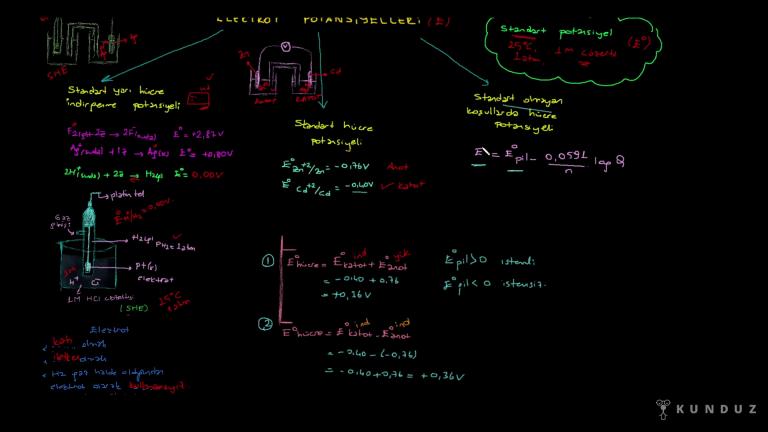 ELEKTROT POTANSİYELLERİ (E)
SHE
Zn
V
Cd
Anot
Katot
Standart potansiyel
25°C, 1M çözelti (E°)
1atm
Standart yarı hücre
indirgenme potansiyeli
ind
F2(g) + 2e → 2F⁻(suda) E° = +2,87V
Ag⁺(suda) + 1e → Ag(k) E° = +0,80V
2H⁺(suda) + 2e → H2(g) E° = 0,00V
platin tel
E°H⁺/H2 = 0,00V
Gaz girişi
H2(g)
PH2 = 1atm
Pt(k)
elektrot
H⁺ Cl⁻
1M HCl çözeltisi
(SHE)
25°C
1atm
Elektrot
katı olmalı
iletken olmalı
H2 gaz halde olduğundan
elektrot olarak kullanılamaz
Standart hücre
potansiyeli
E°Zn⁺²/Zn = -0,76V Anot
E°Cd⁺²/Cd = -0,40V ✓ Katot
① E°hücre = E°katot ind + E°anot yük
= -0,40 + 0,76
= +0,36V
E°pil > 0 istemli
E°pil < 0 istemsiz
② E°hücre = E°katot ind - E°anot ind
= -0,40 - (-0,76)
= -0,40 + 0,76 = +0,36V
Standart olmayan
koşullarda hücre
potansiyeli
E = E°pil - 0,0591/n log Q
KUNDUZ